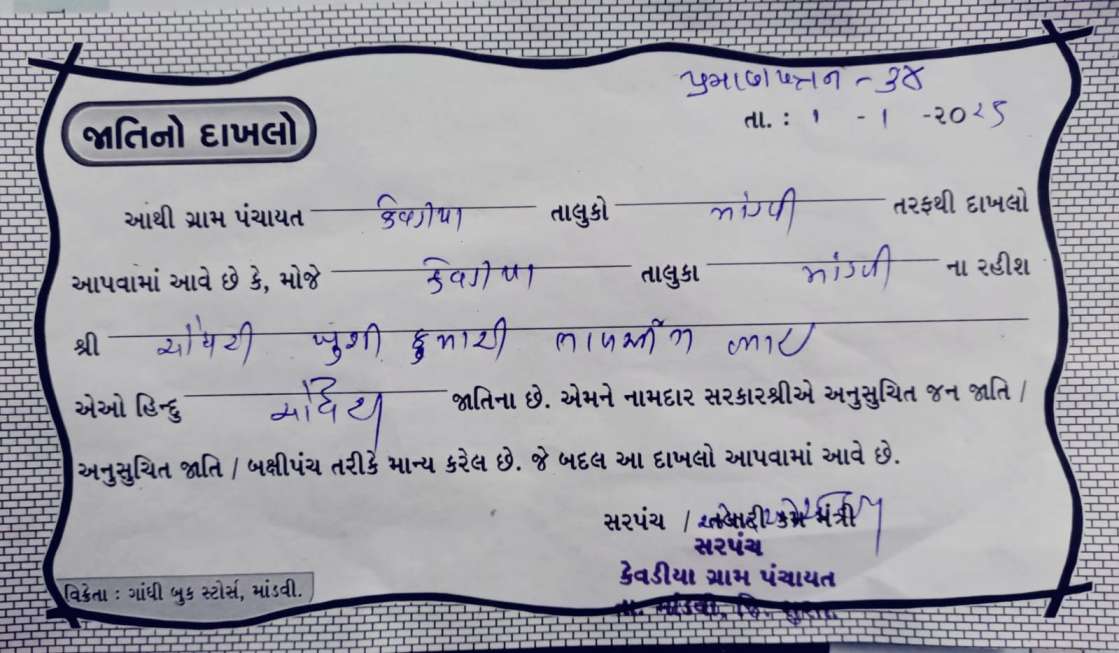 પ્રમાણપત્રન - ૩૪
જાતિનો દાખલો
તા. : ૧ - ૧ - ૨૦૨૫
આથી ગ્રામ પંચાયત કેવડીયા તાલુકો માંડવી તરફથી દાખલો
આપવામાં આવે છે કે, મોજે કેવડીયા તાલુકા માંડવી ના રહીશ
શ્રી ચૌધરી ખુશી કુમારી ભાઇ
એઓ હિન્દુ ચૌધરી જાતિના છે. એમને નામદાર સરકારશ્રીએ અનુસુચિત જન જાતિ /
અનુસુચિત જાતિ / બક્ષીપંચ તરીકે માન્ય કરેલ છે. જે બદલ આ દાખલો આપવામાં આવે છે.
સરપંચ / તલાટી કમ મંત્રી
સરપંચ
કેવડીયા ગ્રામ પંચાયત
તા. માંડવી, જિ. સુરત
વિક્રેતા : ગાંધી બુક સ્ટોર્સ, માંડવી.